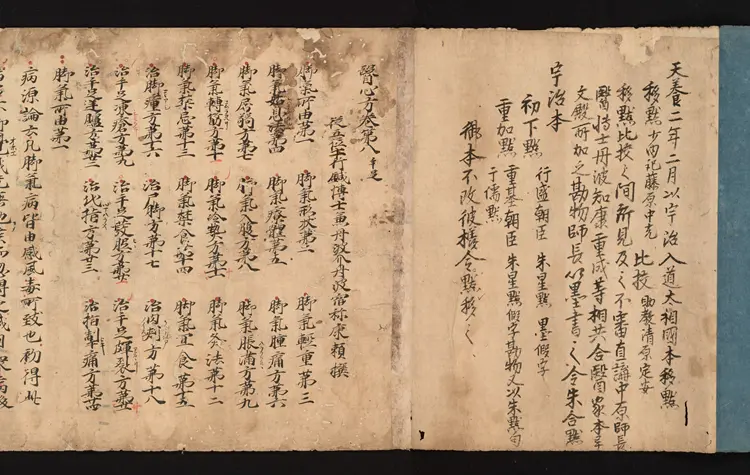 天養二年二月以宇治入道太相國本移點
移點 少内記藤原中光 比挍 助教清原定安
移點比挍之間所見及之不審直講中原師長
醫博士丹波知康重成等相共合醫家本畢
文殿所加之勘物師長以墨書之令朱合點
宇治本
初下點 行盛朝臣 朱星點 墨假字
重加點 重基朝臣 朱星點假字勘物又以朱點句
于儒點
御本不改彼樣令點移之
醫心方卷第八 手足
從五位下行鍼博士兼丹波介丹波宿祢康頼撰
脚氣所由第一 脚氣形狀第二 脚氣輕重第三
脚氣姑息法第四 脚氣療體第五 脚氣腫痛方第六
脚氣屈弱方第七 脚氣入腹方第八 脚氣脹滿方第九
脚氣轉筋方第十 脚氣冷熱方第十一 脚氣灸法第十二
脚氣禁忌第十三 脚氣禁食第十四 脚氣宜食第十五
治脚方第十六 治尸脚方第十七 治肉刺方第十八
治手足凍瘡方第十九 治手足發胝方第廿 治手足皸裂方第廿一
治手足逆臚方第廿二 治代指方第廿三 治指掣痛方第廿四
脚氣所由第一
病源論云凡脚氣病皆由感風毒所致也初得此